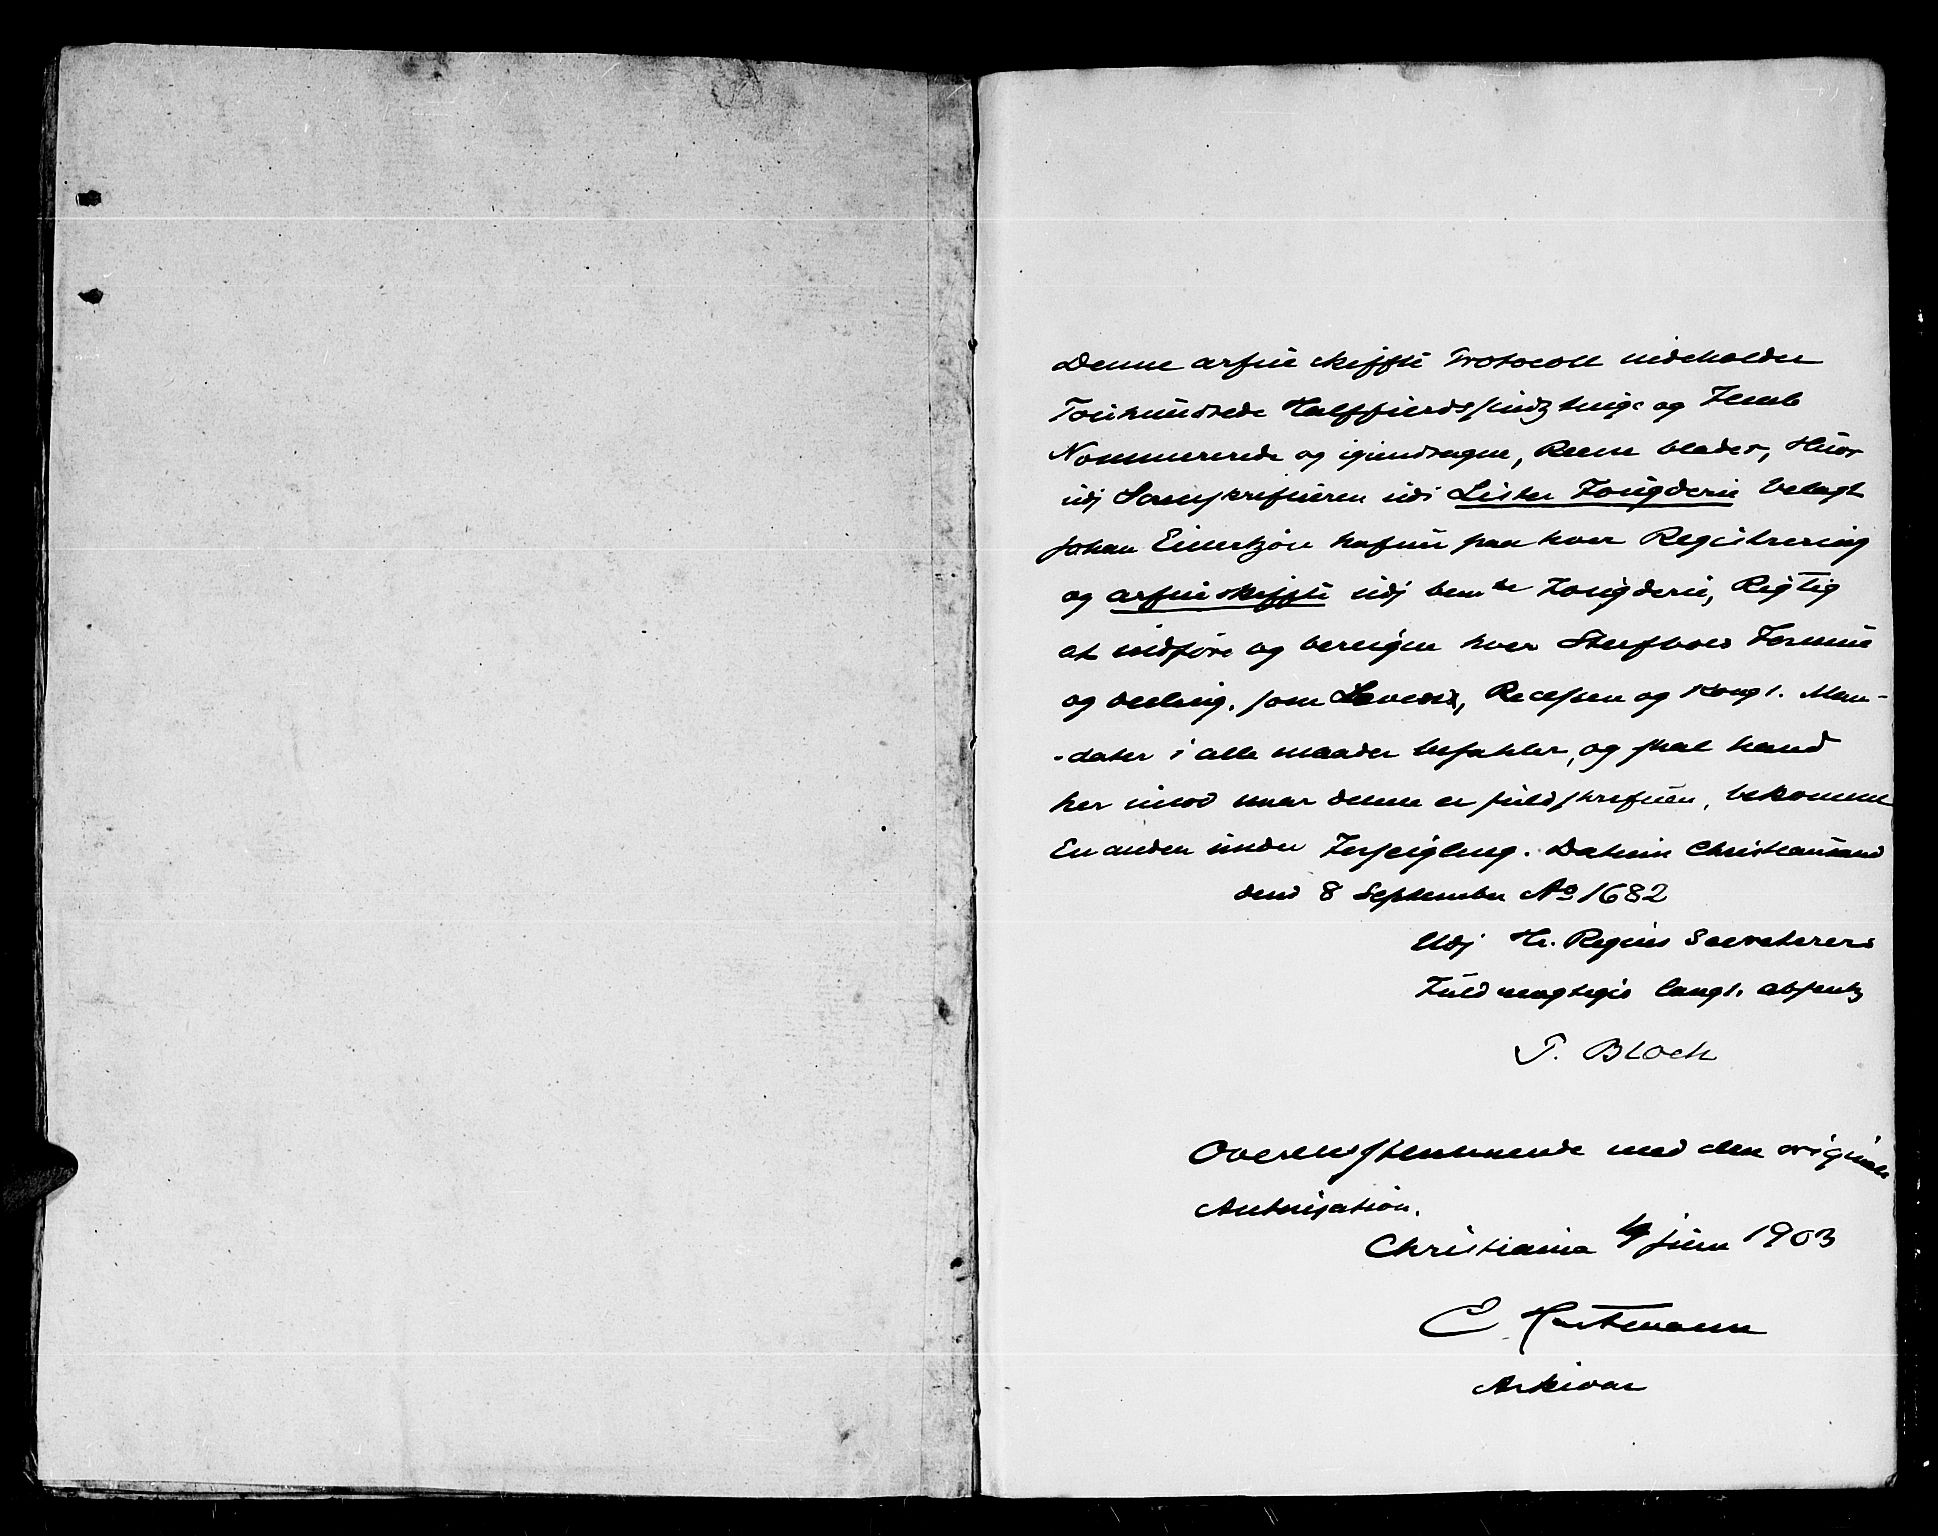 Denne arfue skiffte Protocoll indeholder
Touhundrede Halffierdsindztuige og Femb
Nommererede og igiendragne, Reene blader, Huor
udj Sorenskrifueren udi Lister Fougderie Velagt
Johan Eilertzøn hafuer paa hver Registrering
og arfue skiffte udj bemte Fougderie, Rigtig
at indføre og bereigne hver Sterfboes Formue
og deeling, som Loven, Recessen og Kongl. Man-
-dater i alle maader befahler, og skal hand
her imod naar denne er fuldskrefuen, bekomme
En anden under Forseigling. Datum Christiansand
dend 8 September Ao 1682
Udj Hr. Regius Secreterers
Fuldmegtigis langl. absentz
T. Bloch
Overensstemmende med den originale
Autorisation.
Christiania 4 juni 1903
E. Hartmann
Arkivar